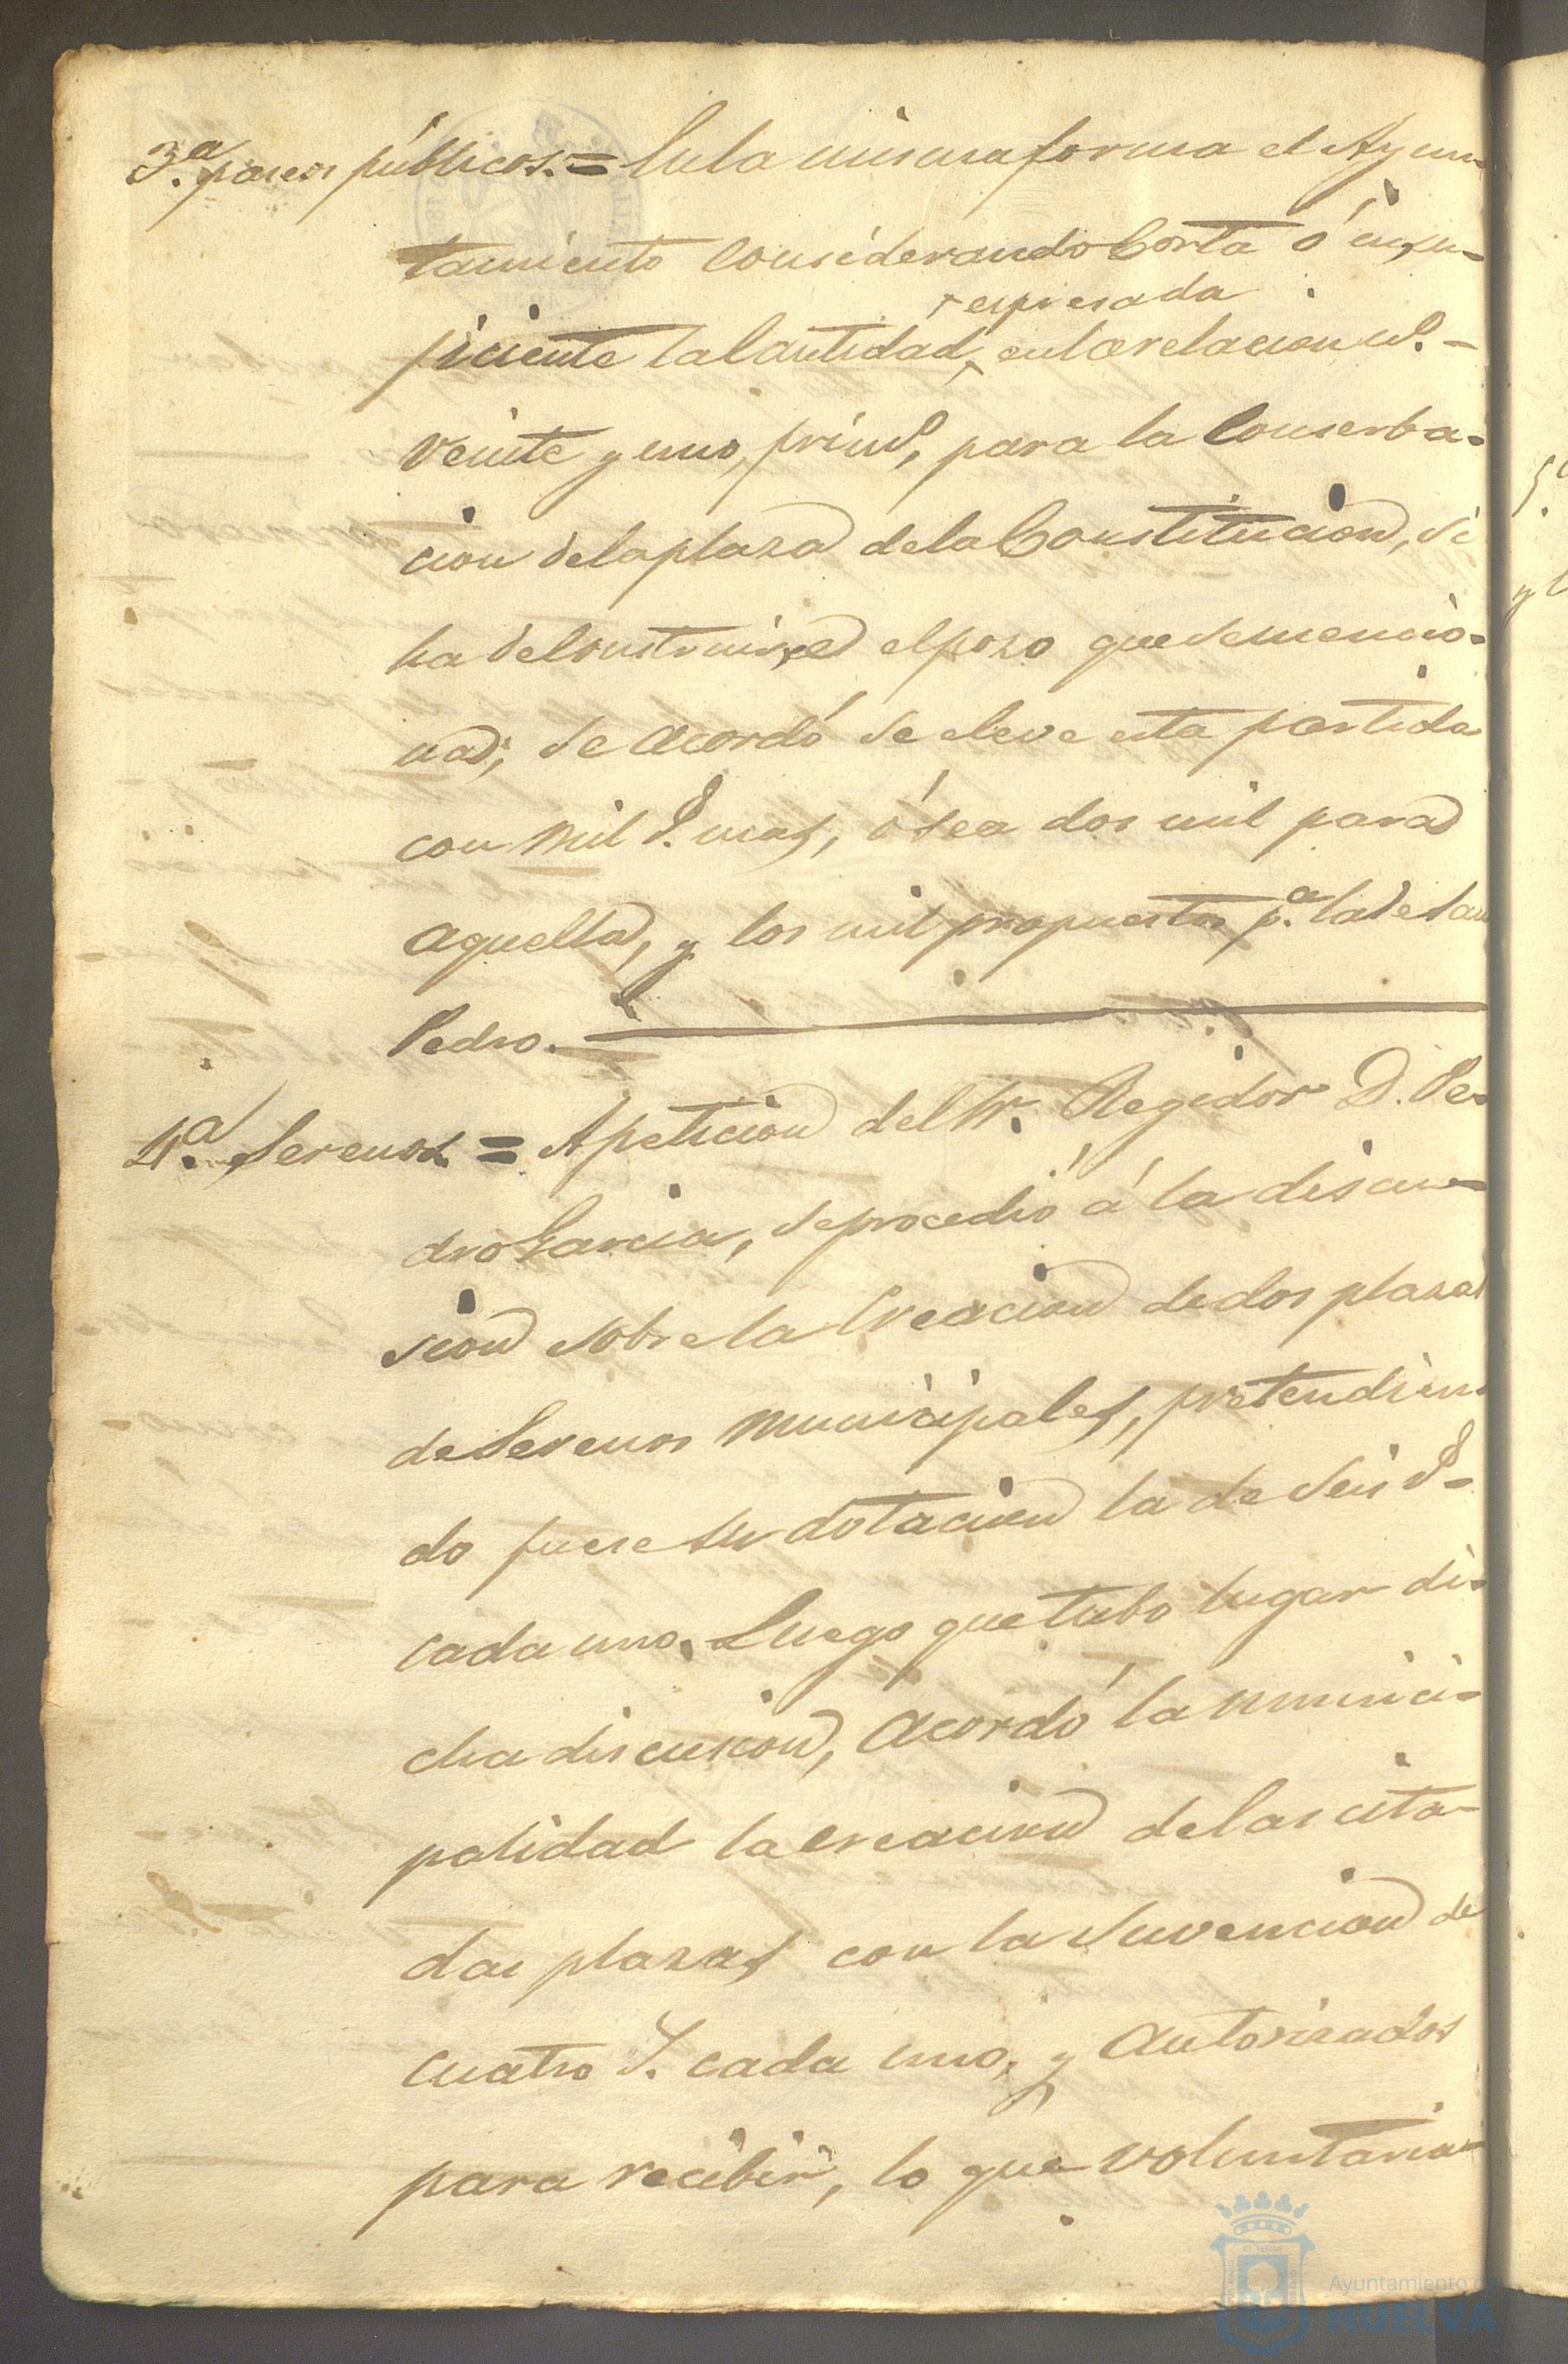 3.ª paseos públicos. = En la misma forma el Ayun-
tamiento considerando corta ó insu-
espresada
ficiente la Cantidad, en la relacion nº. -
veinte y uno, primº, para la Conserba-
cion de la plaza de la Constitucion, si
ha de Construirse el pozo que se mencio-
na; se acordó se eleve esta partida
con mil r.s mas, ó sea dos mil para
aquella, y los mil propuestos p.ª la de San
Pedro.
4.ª Serenos = A peticion del Sr. Regidor D. Pe-
dro Garcia, se procedió á la discu-
sion sobre la Creacion de dos plazas
de Serenos municipales, pretendien-
do fuese su dotacion la de Seis r.s -
cada uno. Luego que tubo lugar di-
cha discusion, acordó la munici-
palidad la creacion de las cita-
das plazas con la suvencion de
cuatro r.s cada uno, y autorizados
para recibir, lo que voluntaria-
5.ª
y l
Ayuntamiento de
HUELVA